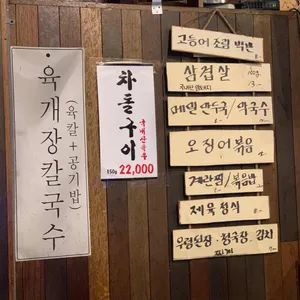 육개장칼국수
(육칼+공기밥)
차돌구이
국내산육우
150g 22,000
고등어 조림 백반
삼겹살
메밀만두국 / 막국수
오징어볶음
계란찜/볶음밥
제육정식
우렁된장·청국장·김치
찌개